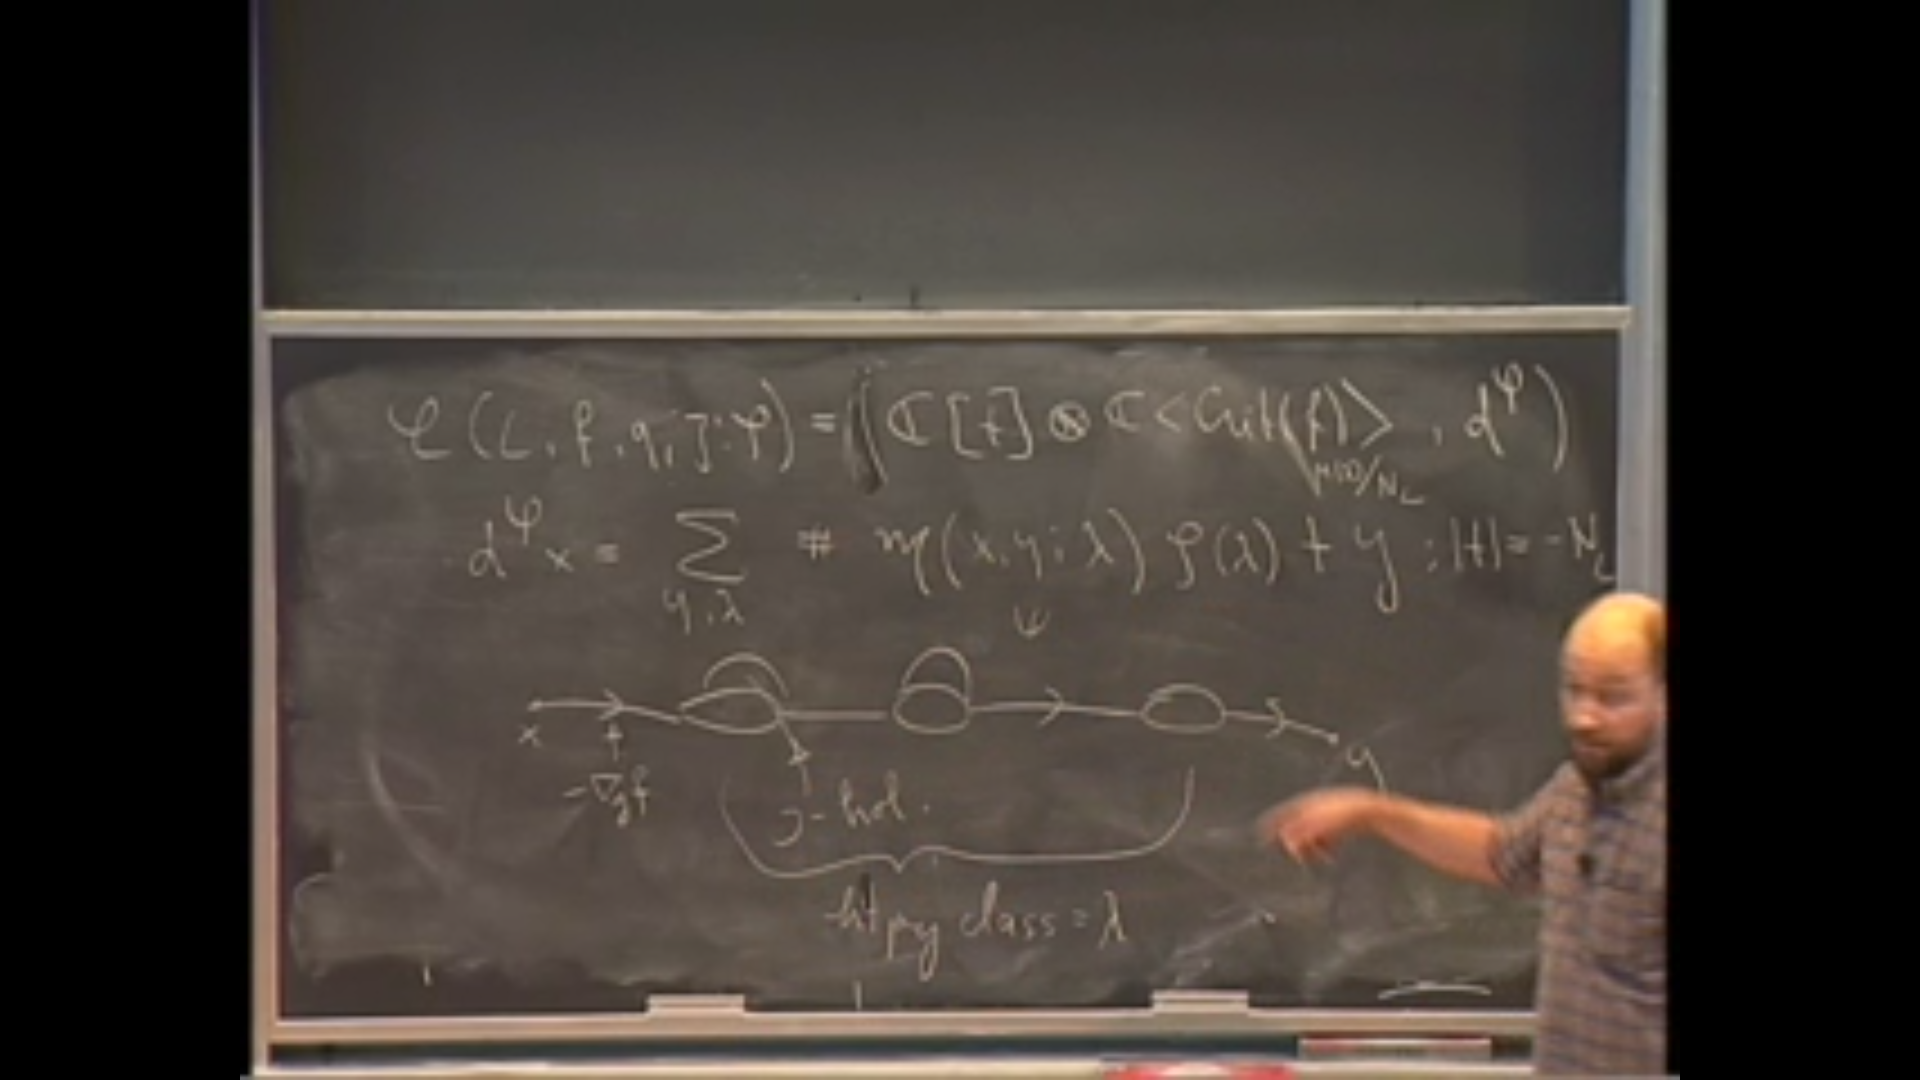 𝒞(L, f, g, J; φ) = (ℂ[t] ⊗ ℂ<Crit(f)>, d^φ)
μ(λ)/N_L
d^φ x = Σ # m(x, y; λ) φ(λ) t y ; |t| = -N_L
y, λ
x
y
-∇_g f
J-hol.
htpy class = λ